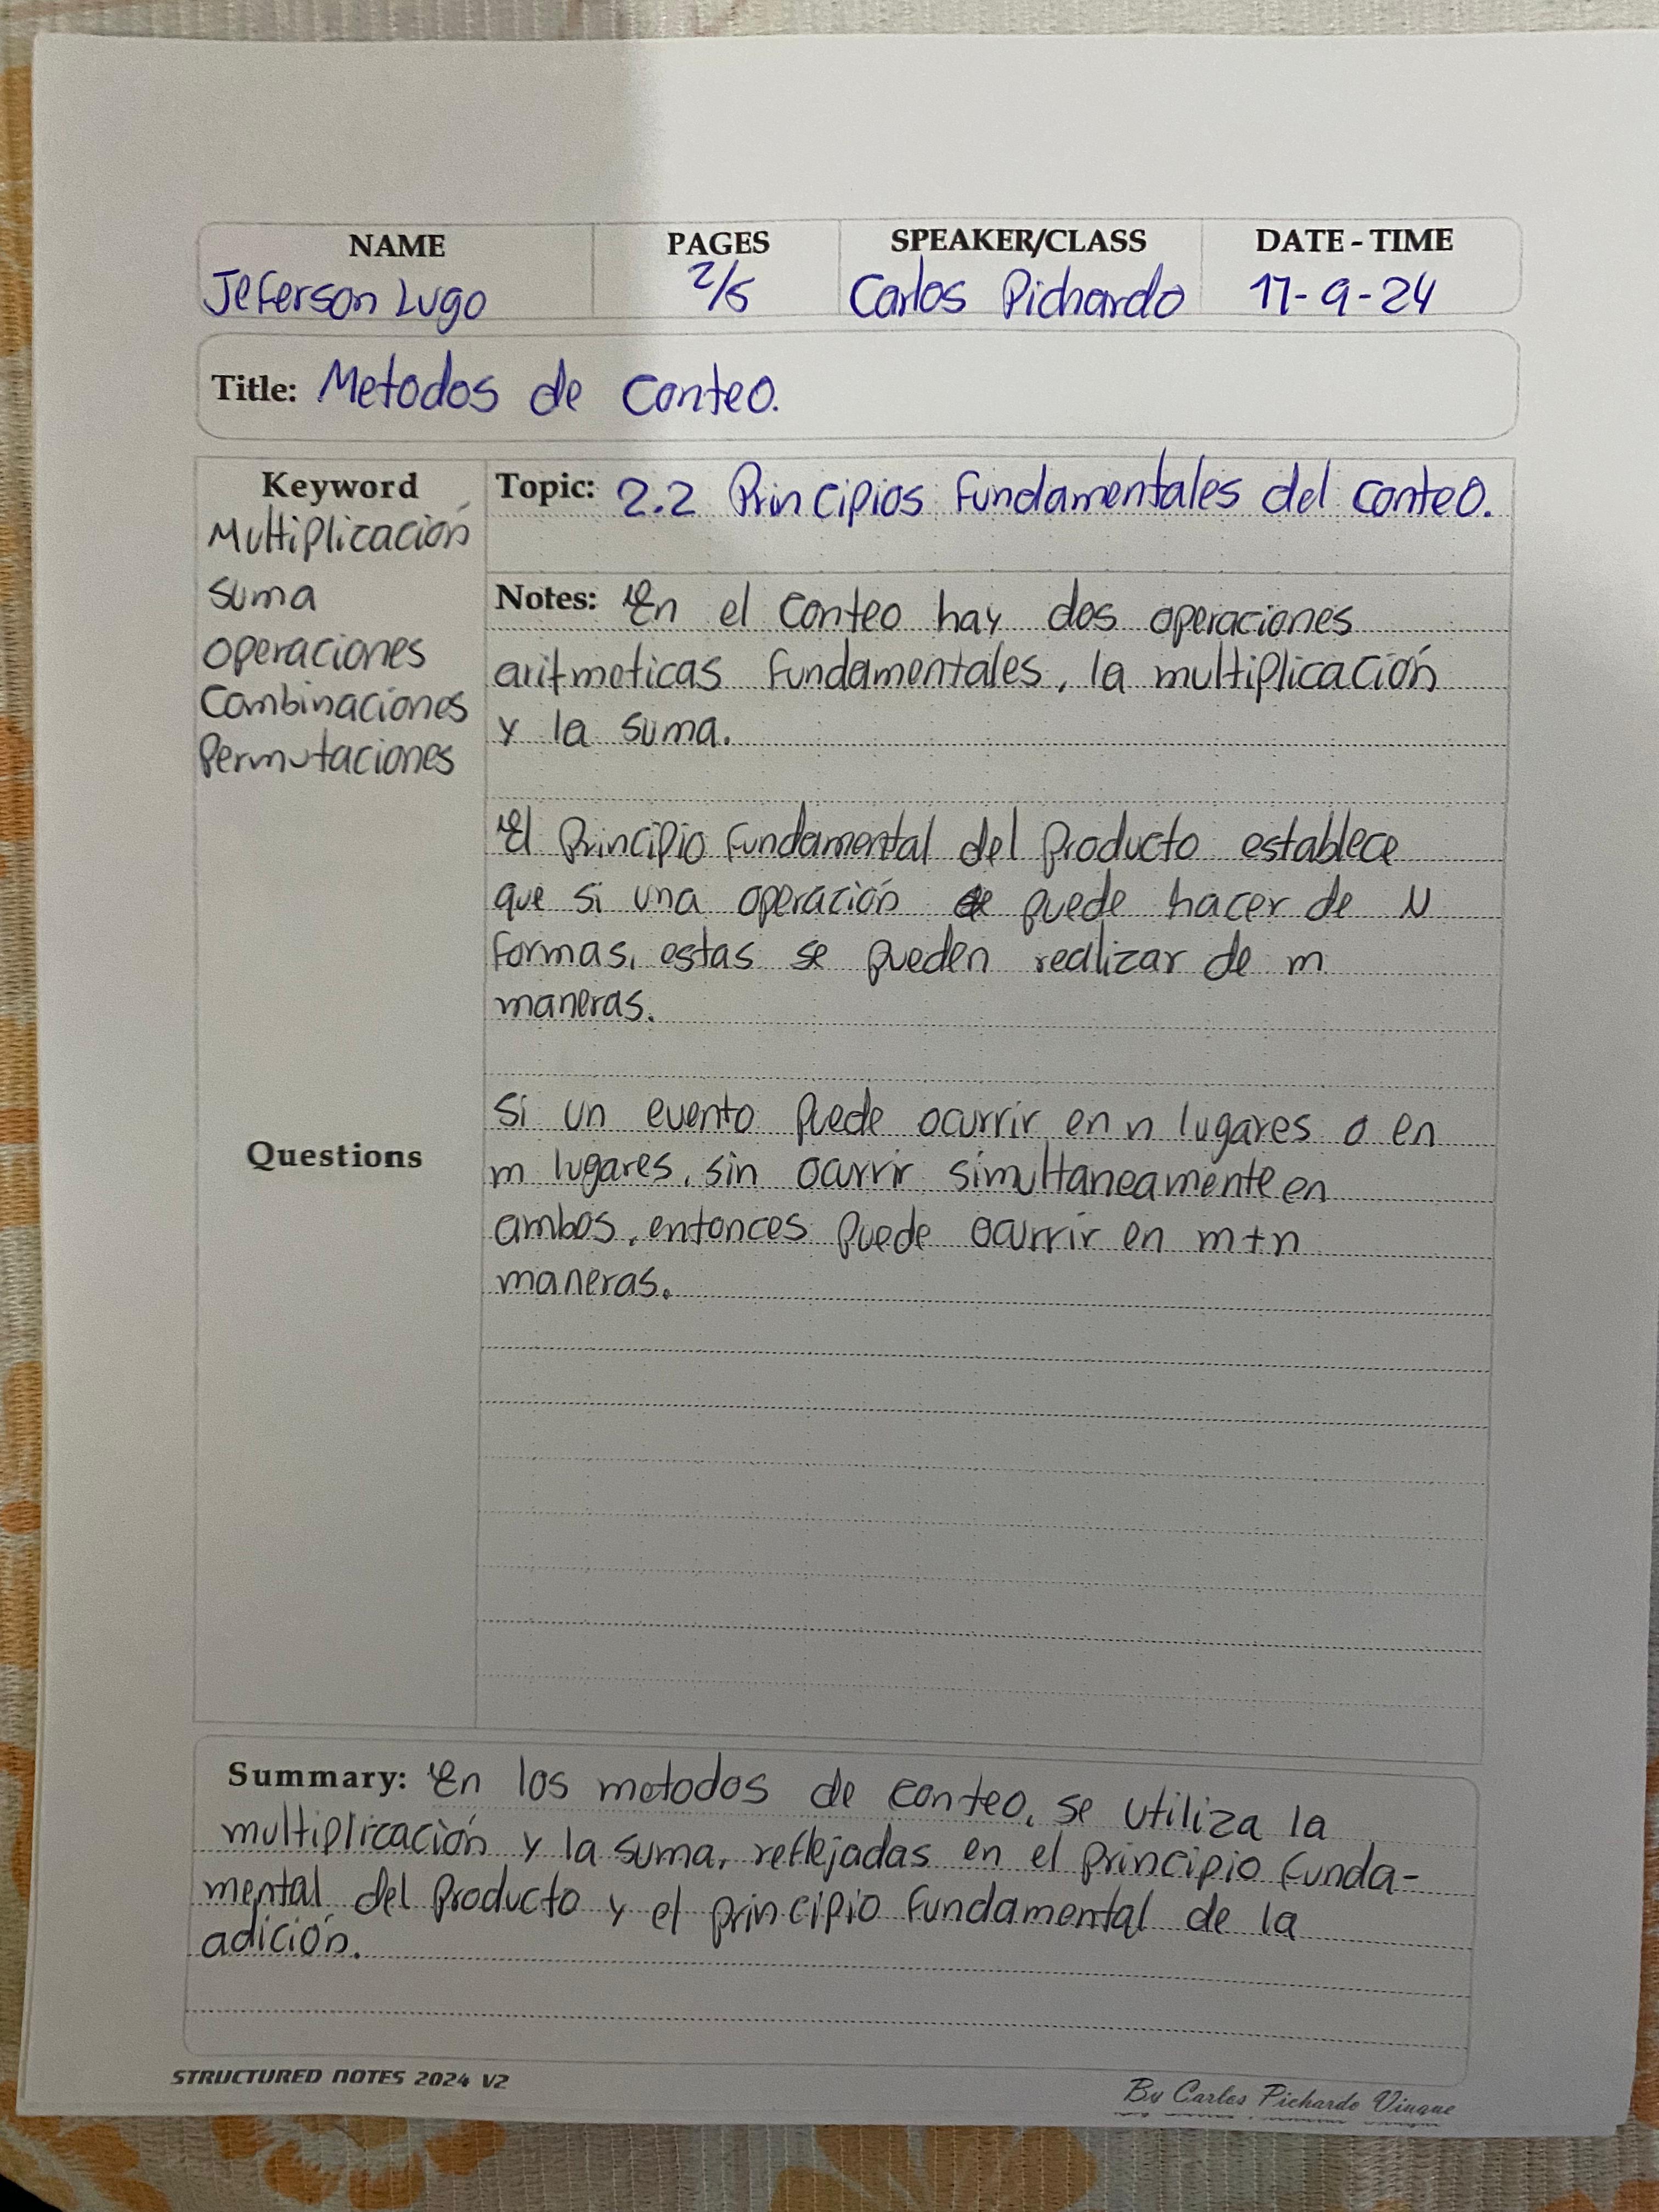 NAME PAGES SPEAKER/CLASS DATE - TIME
Jeferson Lugo 2/5 Carlos Pichardo 17-9-24
Title: Metodos de conteo.
Keyword
Multiplicación
suma
operaciones
Combinaciones
Permutaciones
Questions
Topic: 2.2 Principios fundamentales del conteo.
Notes: En el conteo hay dos operaciones
aritmeticas fundamentales, la multiplicación
y la suma.
El principio fundamental del producto establece
que si una operación se puede hacer de N
formas, estas se pueden realizar de m
maneras.
Si un evento puede ocurrir en n lugares o en
m lugares, sin ocurrir simultaneamente en
ambos, entonces puede ocurrir en m+n
maneras.
Summary: En los metodos de conteo, se utiliza la
multiplicación y la suma, reflejadas en el principio funda-
mental del producto y el principio fundamental de la
adición.
STRUCTURED NOTES 2024 V2
By Carlos Pichardo Viuque